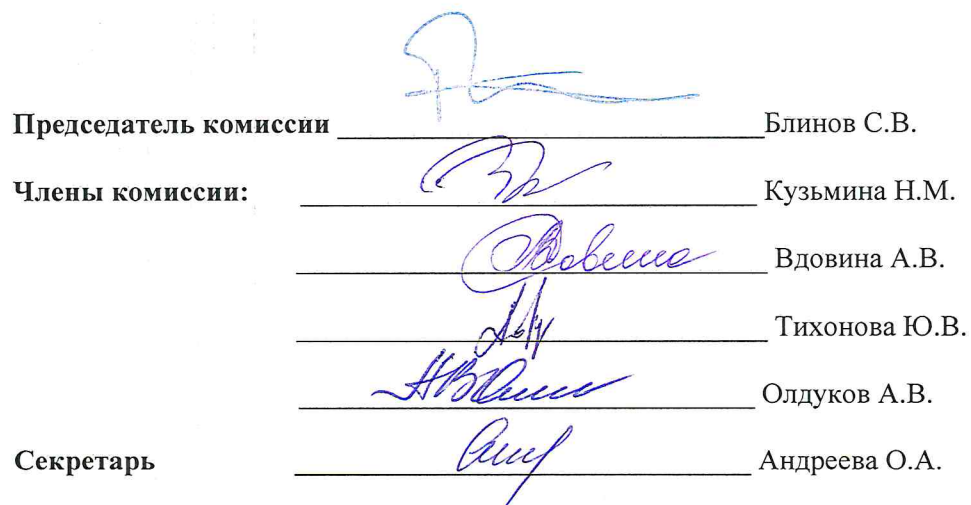 Председатель комиссии Блинов С.В.
Члены комиссии: Кузьмина Н.М.
Вдовина А.В.
Тихонова Ю.В.
Олдуков А.В.
Секретарь Андреева О.А.